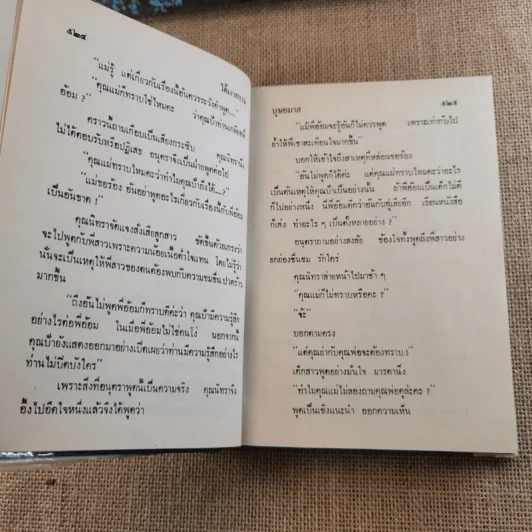 ๕๒๔
"แม่รู้ แต่เกี่ยวกับเรื่องนี้อันควรระวังคำพูด..."
"คุณแม่ก็ทราบใช่ไหมคะ ว่าคุณป้าท่านเกลียดพี่
อ้อม ?"
คราวนี้ถามเกือบเป็นเสียงกระซิบ คุณนิทรานิ่ง
ไม่ได้ตอบรับหรือปฏิเสธ อนุตราจึงเป็นฝ่ายพูดต่อไป
"คุณแม่ทราบไหมคะว่าทำไมคุณป้าถึงได้...?"
"แม่ขอร้อง อันอย่าพูดอะไรเกี่ยวกับเรื่องนี้กับพี่อ้อม
เป็นอันขาด !"
คุณนิทราขัดแจงสั่งเสียลูกสาว
จะไปพูดกับพี่สาวเพราะความน้อยเนื้อต่ำใจแทน โดยไม่รู้ว่า
นั่นจะเป็นเหตุให้พี่สาวของตนต้องพบกับความขมขื่น ปวดร้าว
มากขึ้น
"ถึงอันไม่พูดพี่อ้อมก็ทราบดีค่ะว่า คุณป้ามีความรู้สึก
อย่างไรต่อพี่อ้อม ในเมื่อพี่อ้อมไม่ใช่คนโง่ นอกจากนี้
คุณป้ายังแสดงออกมาอย่างเปิดเผยว่าท่านมีความรู้สึกอย่างไร
ท่านไม่ปิดบังใคร"
เพราะสิ่งที่อนุตราพูดนี้เป็นความจริง คุณนิทราจึง
อึ้งไปอึดใจหนึ่งแล้วจึงได้พูดว่า
บุษยมาส
๕๒๕
"แม้พี่อ้อมจะรู้อันก็ไม่ควรพูด เพราะเท่ากับไป
ย้ำให้พี่เขาสะเทือนใจมากขึ้น"
บอกให้เข้าใจถึงสาเหตุที่หล่อนขอร้อง
"อันไม่พูดก็ได้ค่ะ แต่คุณแม่ทราบไหมคะว่าอะไร
เป็นต้นเหตุให้คุณป้าเป็นอย่างนั้น ถ้าพี่อ้อมเป็นเด็กไม่ดี
ก็ไปอย่างหนึ่ง นี่พี่อ้อมดีกว่าอันกับอู๋เสียอีก เรียนหนังสือ
ก็เก่ง ทำอะไร ๆ เป็นตั้งหลายอย่าง ?"
อนุตราถามอย่างสงสัย ข้องใจทั้งพูดถึงพี่สาวอย่าง
ยกย่องชื่นชม รักใคร่
คุณนิทราส่ายหน้าไปมาช้า ๆ
"คุณแม่ก็ไม่ทราบหรือคะ ?"
"จ้ะ"
บอกตามตรง
"แต่คุณย่ากับคุณพ่อจะต้องทราบ !"
เด็กสาวพูดอย่างมั่นใจ มารดานิ่ง
"ทำไมคุณแม่ไม่ลองถามคุณพ่อดูล่ะคะ ?"
พูดเป็นเชิงแนะนำ ออกความเห็น